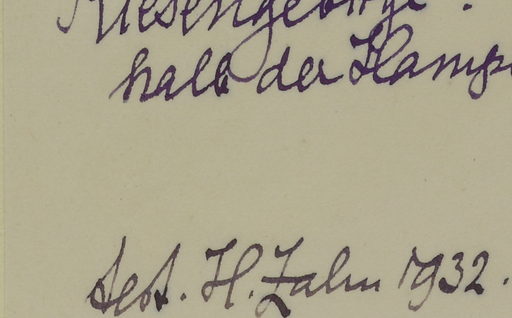 Riesengebirge.
halb der Kamp
det. H. Zahn 1932.